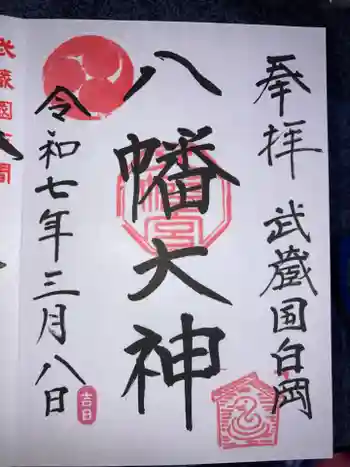 奉拝 武蔵国白岡
八幡大神
令和七年三月八日
吉日